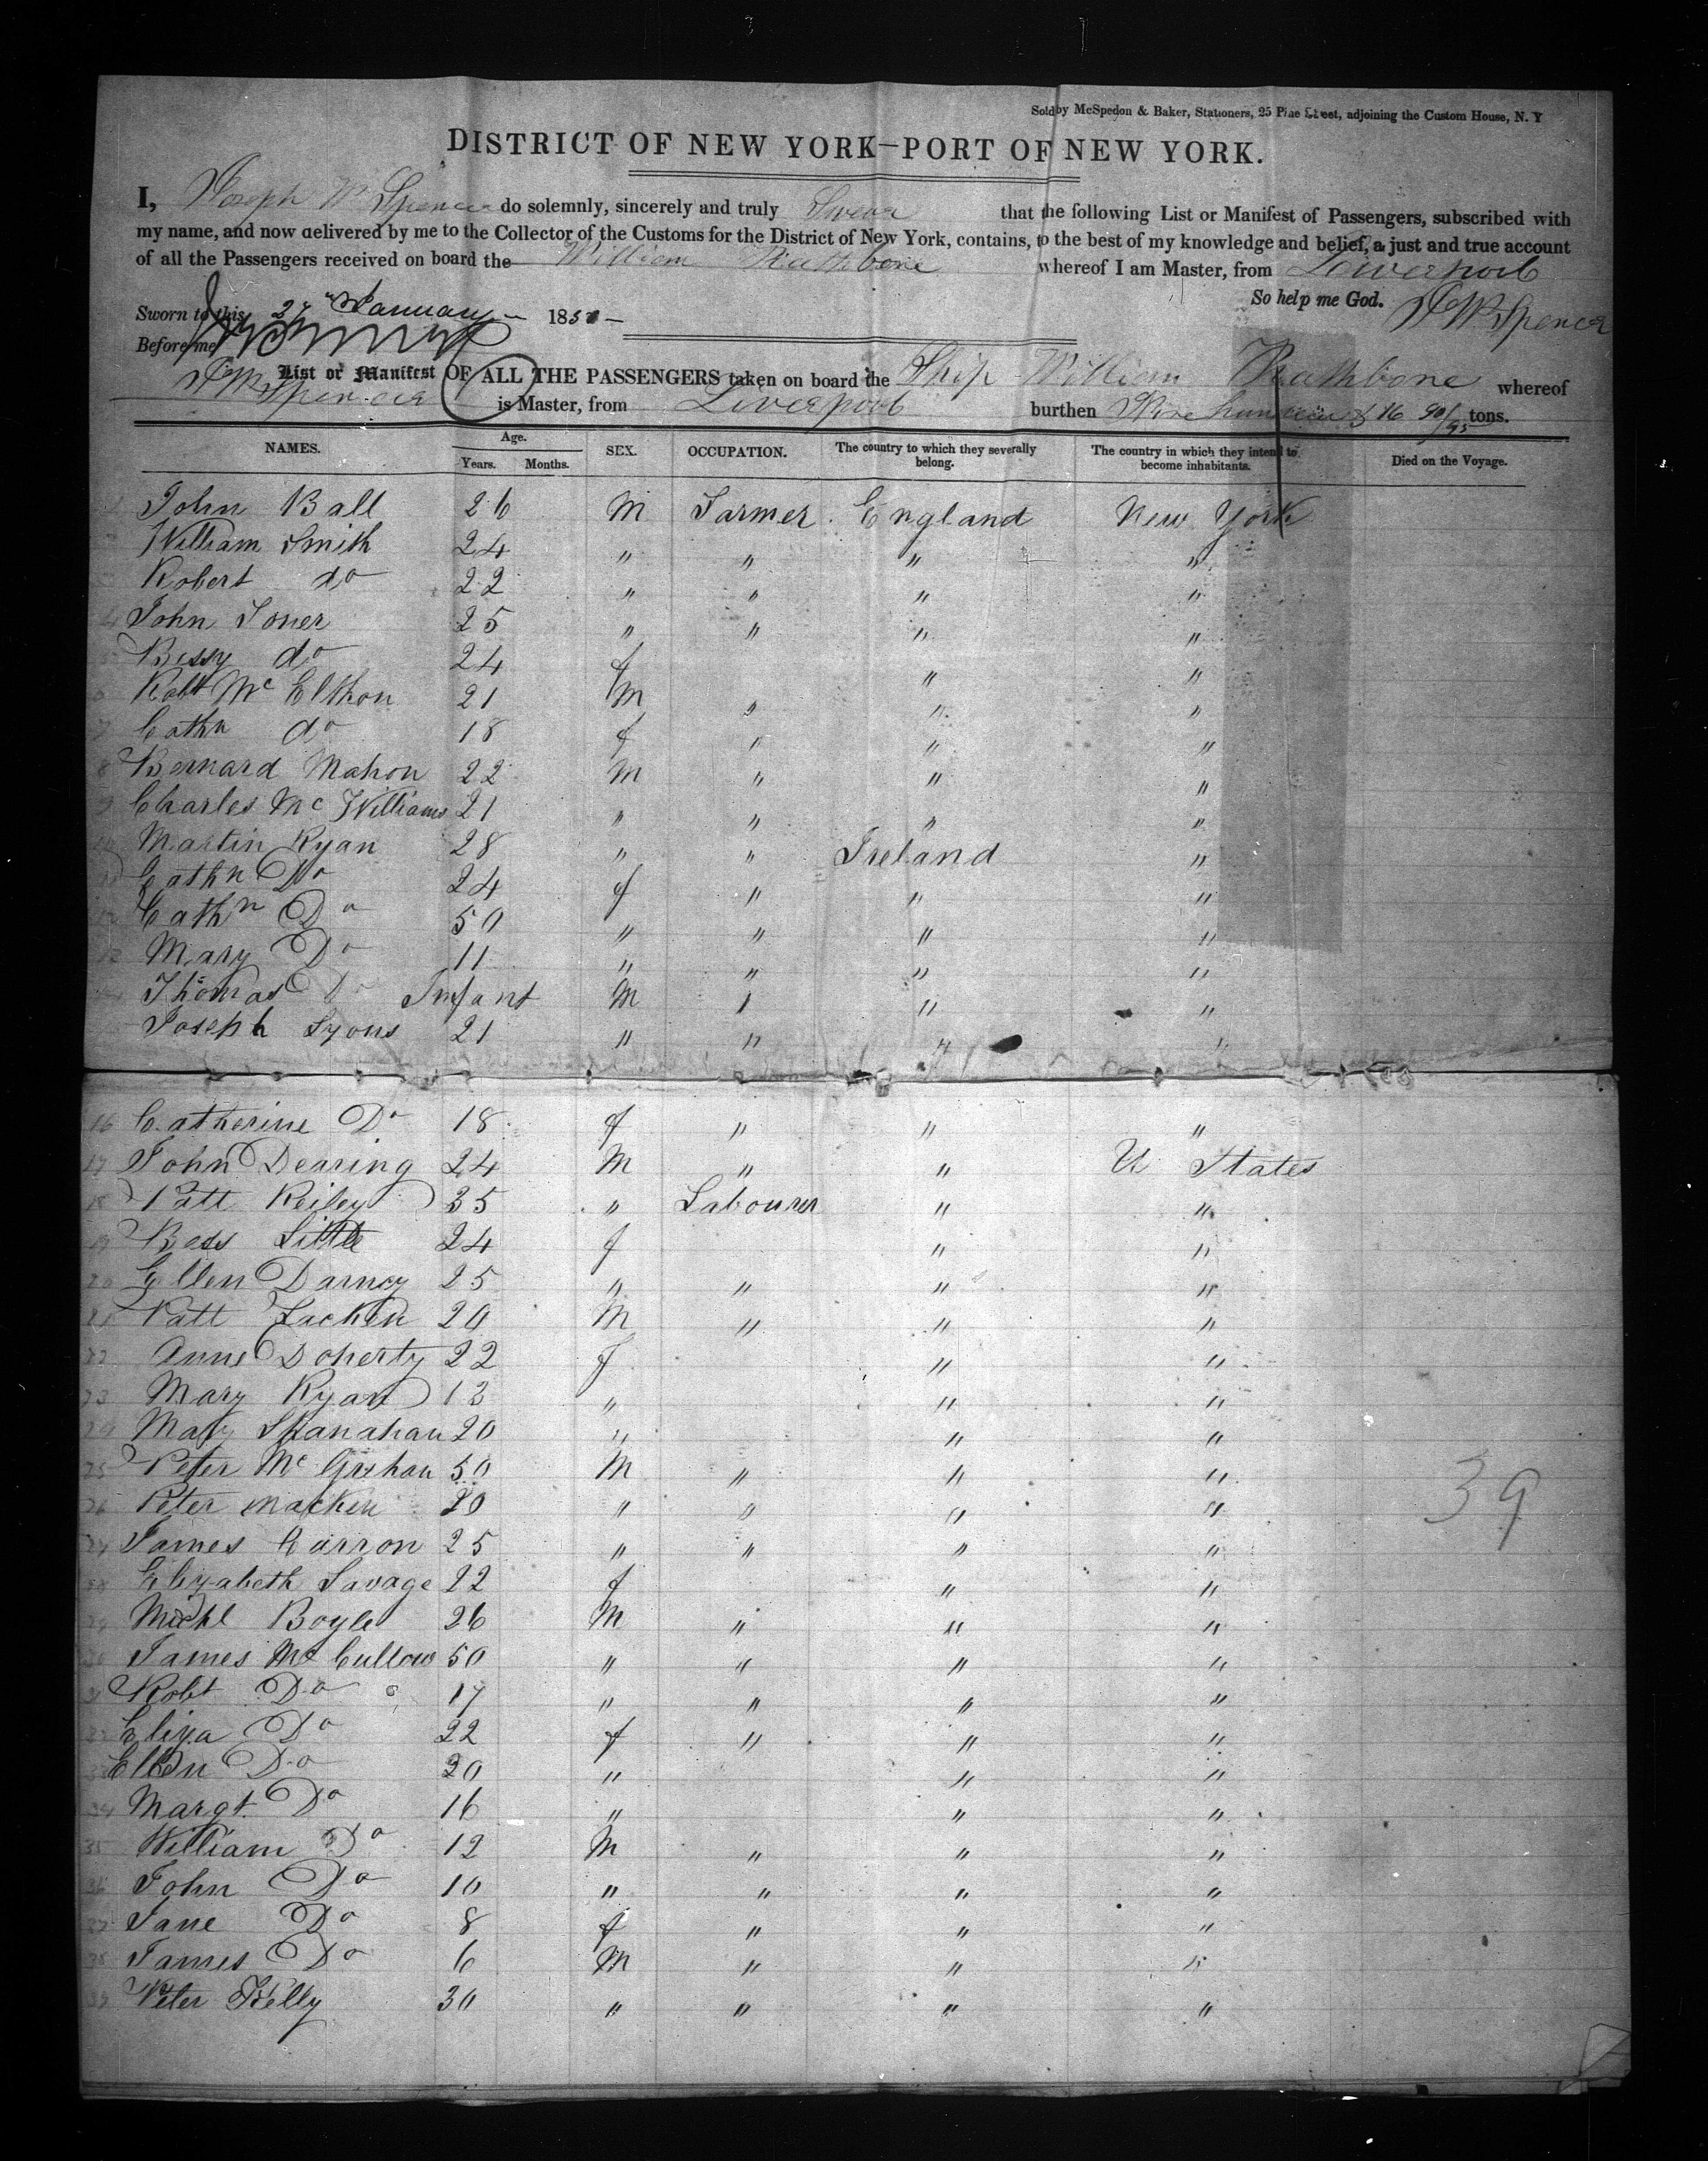 Sold by McSpedon & Baker, Stationers, 25 Pine Street, adjoining the Custom House, N. Y
DISTRICT OF NEW YORK—PORT OF NEW YORK.
I, Joseph W Spencer do solemnly, sincerely and truly Swear that the following List or Manifest of Passengers, subscribed with
my name, and now delivered by me to the Collector of the Customs for the District of New York, contains, to the best of my knowledge and belief, a just and true account
of all the Passengers received on board the William Rathbone whereof I am Master, from Liverpool
So help me God. J W Spencer
Sworn to this 27 January 185
Before me
List or Manifest OF ALL THE PASSENGERS taken on board the Ship William Rathbone whereof
J W Spencer is Master, from Liverpool burthen Nine hundred & 16 90/95 tons.
NAMES. Age. Years. Months. SEX. OCCUPATION. The country to which they severally belong. The country in which they intend to become inhabitants. Died on the Voyage.
John Ball 26 M Farmer England New York
William Smith 24 " " " "
Robert do 22 " " " "
4 John Toner 25 " " " "
5 Bessy do 24 f " "
6 Robt Mc Elthon 21 M " " "
7 Cathn do 18 f " " "
8 Bernard Mahon 22 M " " "
9 Charles Mc Williams 21 " " " "
10 Martin Ryan 28 " " Ireland "
11 Cathn Do 24 f " " "
12 Cathn Do 50 " " " "
13 Mary Do 11 " " " "
Thomas Do Infant M " " "
Joseph Lyons 21 " " " "
16 Catherine Do 18 f " " "
17 John Dearing 24 M " " U States
18 Patt Reiley 35 " Labourer " "
19 Bess Little 24 f " "
20 Ellen Darncy 25 " " " "
21 Patt Lacken 20 M " " "
22 Anne Doherty 22 f " "
23 Mary Ryan 13 " " "
24 Mary Shanahan 20 " " "
25 Peter Mc Grehan 50 M " " "
26 Peter Macken 20 " " " "
27 James Carron 25 " " " "
28 Elizabeth Savage 22 f " "
29 Michl Boyle 26 M " " "
30 James Mc Cullow 50 " " " "
31 Robt Do 17 " " " "
32 Eliza Do 22 f " " "
33 Ellen Do 20 " " "
34 Margt Do 16 " " "
35 William Do 12 M " " "
36 John Do 10 " " " "
37 Jane Do 8 f " " "
38 James Do 6 M " " "
39 Peter Kelly 30 " " " "
39